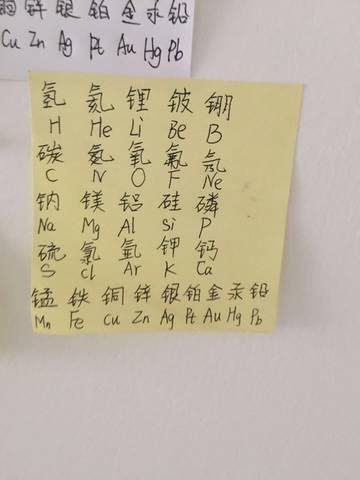 铜 锌 银 铂 金 汞 铅
Cu Zn Ag Pt Au Hg Pb
氢 氦 锂 铍 硼
H He Li Be B
碳 氮 氧 氟 氖
C N O F Ne
钠 镁 铝 硅 磷
Na Mg Al Si P
硫 氯 氩 钾 钙
S Cl Ar K Ca
锰 铁 铜 锌 银 铂 金 汞 铅
Mn Fe Cu Zn Ag Pt Au Hg Pb